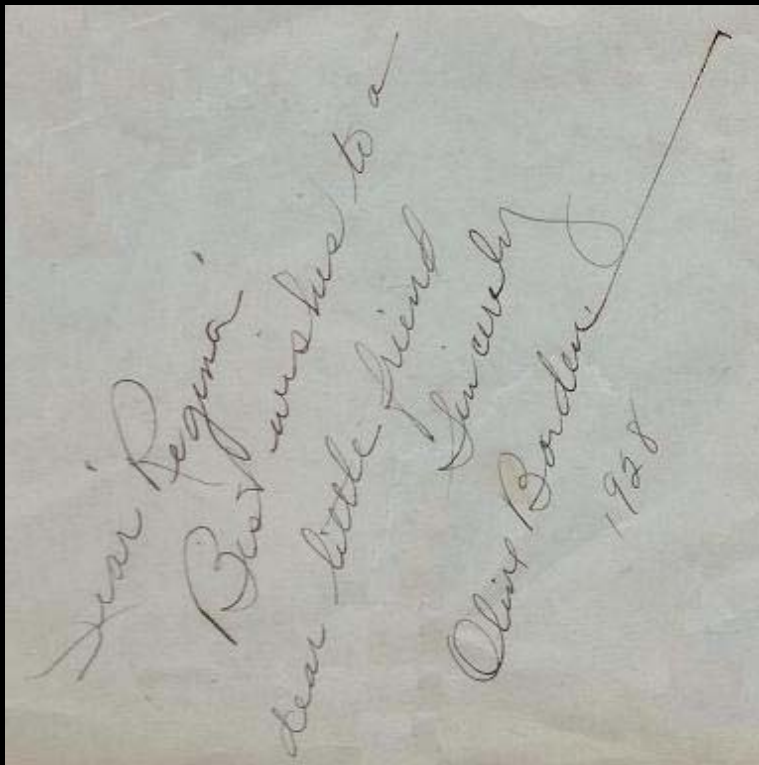 Dear "Regina"
Best wishes to a
dear little friend
Sincerely
Olive Borden.
1928